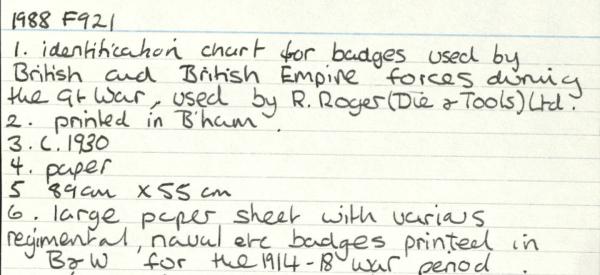 1988 F921
1. identification chart for badges used by
British and British Empire forces during
the Gt War, used by R. Roger (Die & Tools) Ltd.
2. printed in B'ham.
3. C. 1930
4. paper
5 89cm x 55 cm
6. large paper sheet with various
regimental, naval etc badges printed in
B&W for the 1914-18 war period.